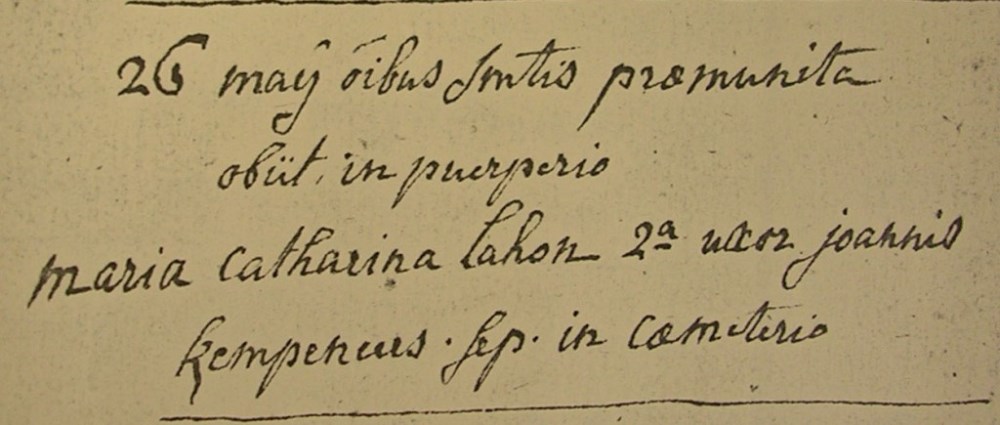 26 maÿ õibus Smtis præmunita
obiit in puerperio
maria catharina Lahon 2ª uxor joannis
kempeneers . sep. in cæmeterio